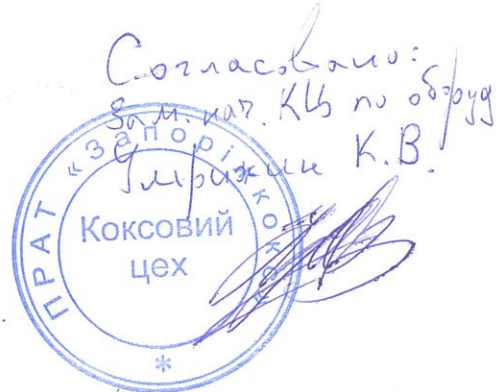 Согласовано:
Зам. нач. КЦ по оборуд
К.В.
ПРАТ «Запоріжкокс»
Коксовий
цех